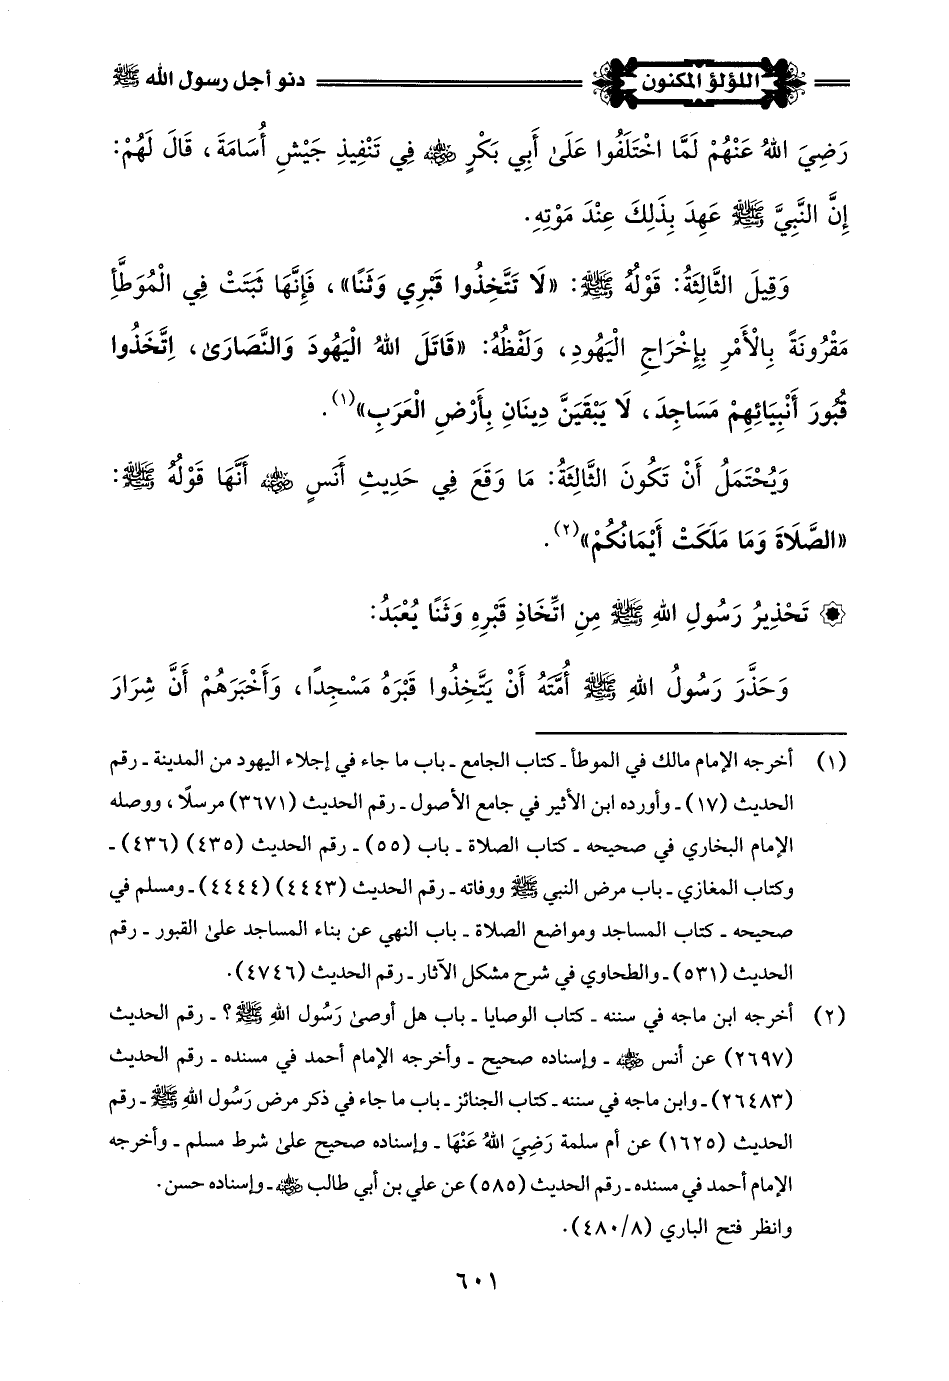 اللؤلؤ المكنون دنو أجل رسول الله ﷺ
رَضِيَ اللهُ عَنْهُمْ لَمَّا اخْتَلَفُوا عَلَىٰ أَبِي بَكْرٍ رضي الله عنه فِي تَنْفِيذِ جَيْشِ أُسَامَةَ، قَالَ لَهُمْ:
إِنَّ النَّبِيَّ ﷺ عَهِدَ بِذَلِكَ عِنْدَ مَوْتِهِ.
وَقِيلَ الثَّالِثَةُ: قَوْلُهُ ﷺ: «لَا تَتَّخِذُوا قَبْرِي وَثَنًا»، فَإِنَّهَا ثَبَتَتْ فِي الْمُوَطَّأِ
مَقْرُونَةً بِالْأَمْرِ بِإِخْرَاجِ الْيَهُودِ، وَلَفْظُهُ: «قَاتَلَ اللهُ الْيَهُودَ وَالنَّصَارَىٰ، اتَّخَذُوا
قُبُورَ أَنْبِيَائِهِمْ مَسَاجِدَ، لَا يَبْقَيَنَّ دِينَانِ بِأَرْضِ الْعَرَبِ»(١).
وَيُحْتَمَلُ أَنْ تَكُونَ الثَّالِثَةُ: مَا وَقَعَ فِي حَدِيثِ أَنَسٍ رضي الله عنه أَنَّهَا قَوْلُهُ ﷺ:
«الصَّلَاةَ وَمَا مَلَكَتْ أَيْمَانُكُمْ»(٢).
تَحْذِيرُ رَسُولِ اللهِ ﷺ مِنِ اتِّخَاذِ قَبْرِهِ وَثَنًا يُعْبَدُ:
وَحَذَّرَ رَسُولُ اللهِ ﷺ أُمَّتَهُ أَنْ يَتَّخِذُوا قَبْرَهُ مَسْجِدًا، وَأَخْبَرَهُمْ أَنَّ شِرَارَ
(١) أخرجه الإمام مالك في الموطأ ـ كتاب الجامع ـ باب ما جاء في إجلاء اليهود من المدينة ـ رقم
الحديث (١٧) ـ وأورده ابن الأثير في جامع الأصول ـ رقم الحديث (٣٦٧١) مرسلًا، ووصله
الإمام البخاري في صحيحه ـ كتاب الصلاة ـ باب (٥٥) ـ رقم الحديث (٤٣٥) (٤٣٦) ـ
وكتاب المغازي ـ باب مرض النبي ﷺ ووفاته ـ رقم الحديث (٤٤٤٣) (٤٤٤٤) ـ ومسلم في
صحيحه ـ كتاب المساجد ومواضع الصلاة ـ باب النهي عن بناء المساجد علىٰ القبور ـ رقم
الحديث (٥٣١) ـ والطحاوي في شرح مشكل الآثار ـ رقم الحديث (٤٧٤٦).
(٢) أخرجه ابن ماجه في سننه ـ كتاب الوصايا ـ باب هل أوصىٰ رَسُول اللهِ ﷺ؟ ـ رقم الحديث
(٢٦٩٧) عن أنس رضي الله عنه ـ وإسناده صحيح ـ وأخرجه الإمام أحمد في مسنده ـ رقم الحديث
(٢٦٤٨٣) ـ وابن ماجه في سننه ـ كتاب الجنائز ـ باب ما جاء في ذكر مرض رَسُول اللهِ ﷺ ـ رقم
الحديث (١٦٢٥) عن أم سلمة رَضِيَ اللهُ عَنْهَا ـ وإسناده صحيح علىٰ شرط مسلم ـ وأخرجه
الإمام أحمد في مسنده ـ رقم الحديث (٥٨٥) عن علي بن أبي طالب رضي الله عنه ـ وإسناده حسن.
وانظر فتح الباري (٤٨٠/٨).
٦٠١